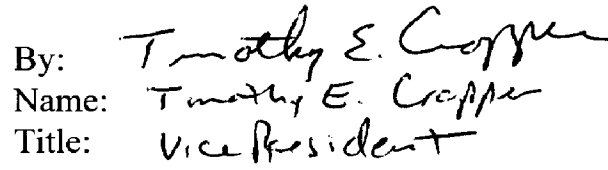 By: Timothy E. Cropper
Name: Timothy E. Cropper
Title: Vice President